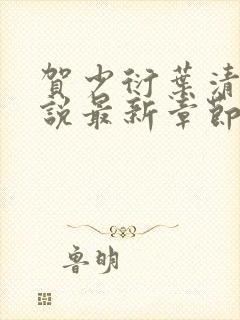 賀少衍葉清
說最新章節
魯明